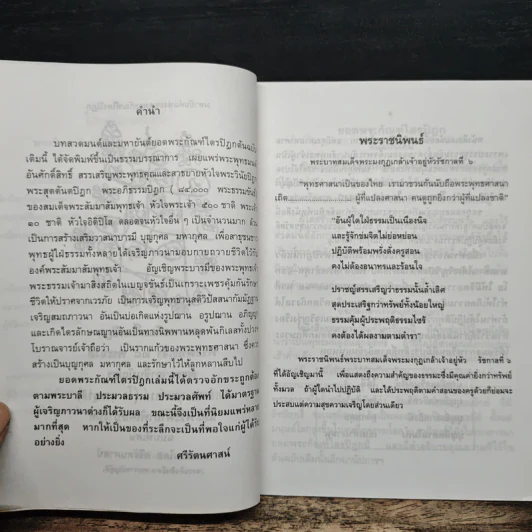 คำนำ
บทสวดมนต์และมหายันต์ยอดพระกัณฑ์ไตรปิฎกต้นฉบับ
เดิมนี้ ได้จัดพิมพ์ขึ้นเป็นธรรมบรรณาการ เผยแพร่พระพุทธมนต์
อันศักดิ์สิทธิ์ สรรเสริญพระพุทธคุณและสาธยายหัวใจพระวินัยปิฎก
พระสุตตันตปิฎก พระอภิธรรมปิฎก (๘๔,๐๐๐ พระธรรมขันธ์
ของสมเด็จพระสัมมาสัมพุทธเจ้า หัวใจพระเจ้า ๕๐๐ ชาติ
๑๐ ชาติ หัวใจอิติปิโส ตลอดจนหัวใจอื่น ๆ เป็นจำนวนมาก
เป็นการสร้างเสริมวาสนาบารมี บุญกุศล มหากุศล เพื่อสาธุชน
พุทธผู้ใฝ่ธรรมทั้งหลายได้เจริญภาวนามอบกายถวายชีวิตไว้กับ
องค์พระสัมมาสัมพุทธเจ้า อัญเชิญพระบารมีของพระพุทธเจ้า
พระธรรมเจ้ามาสิงสถิตในเบญจขันธ์เป็นเกราะเพชรคุ้มกันรักษา
ชีวิตให้ปราศจากเวรภัย เป็นการเจริญพุทธานุสติวิปัสสนากัมมัฏฐาน
เจริญสมถภาวนา อันเป็นบ่อเกิดแห่งรูปฌาน อรูปฌาน อภิญญา
และเกิดไตรลักษณญาณอันเป็นทางนิพพานหลุดพ้นกิเลสทั้งปวง
โบราณจารย์เจ้าถือว่า เป็นรากแก้วของพระพุทธศาสนา ซึ่ง
สร้างเป็นบุญกุศล มหากุศล และรักษาไว้ให้ลูกหลานสืบไป
ยอดพระกัณฑ์ไตรปิฎกเล่มนี้ได้ตรวจอักขระถูกต้อง
ตามพระบาลี ประมวลธรรม ประมวลศัพท์ ได้มาตรฐาน
ผู้เจริญภาวนาต่างก็ได้รับผล ขณะนี้จึงเป็นที่นิยมแพร่หลาย
มากที่สุด หากให้เป็นของที่ระลึกจะเป็นที่พอใจแก่ผู้ได้รับ
อย่างยิ่ง
ศรีรัตนศาสน์
พระราชนิพนธ์
พระบาทสมเด็จพระมงกุฎเกล้าเจ้าอยู่หัวรัชกาลที่ ๖
"พุทธศาสนาเป็นของไทย เรามาชวนกันนับถือพระพุทธศาสนา
เถิด..............ผู้ที่แปลงศาสนา คนดูถูกยิ่งกว่าผู้ที่แปลงชาติ"
"อันผู้ใดใฝ่ธรรมเป็นเนืองนิจ
และรู้จักข่มจิตไม่ย่อหย่อน
ปฏิบัติพร้อมพรั่งดั่งครูสอน
คงไม่ต้องอนาทรและร้อนใจ
ปราชญ์สรรเสริญว่าธรรมนั้นล้ำเลิศ
สุดประเสริฐกว่าทรัพย์ทั้งน้อยใหญ่
ธรรมคุ้มผู้ประพฤติธรรมไซร้
คงต้องได้ผลงามตามตำรา"
พระราชนิพนธ์พระบาทสมเด็จพระมงกุฎเกล้าเจ้าอยู่หัว รัชกาลที่ ๖
ที่ได้อัญเชิญมานี้ เพื่อแสดงถึงความสำคัญของธรรมะซึ่งมีคุณค่ายิ่งกว่าทรัพย์
ทั้งมวล ถ้าผู้ใดนำไปปฏิบัติ และได้ประพฤติตามคำสอนของครูด้วยก็ย่อมจะ
ประสบแต่ความสุขความเจริญโดยส่วนเดียว